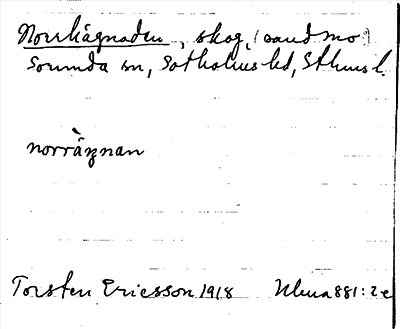 Norrhägnaden, skog, (sandmo)
Sorunda sn, Sotholms hd, Sthms l.
norrä̀gnan
Torsten Ericsson 1918 Ulma 881:2e